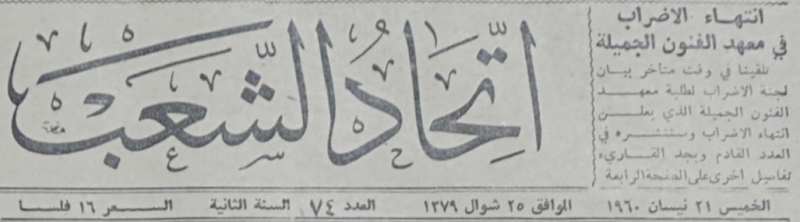 اتحاد الشعب
انتهاء الاضراب
في معهد الفنون الجميلة
تلقينا في وقت متأخر بيان
لجنة الاضراب لطلبة معهد
الفنون الجميلة الذي يعلن
انتهاء الاضراب وسننشره في
العدد القادم ويجد القارىء
تفاصيل اخرى على الصفحة الرابعة
الخميس ٢١ نيسان ١٩٦٠ الموافق ٢٥ شوال ١٣٧٩ العدد ٧٤ السنة الثانية السعر ١٦ فلسا